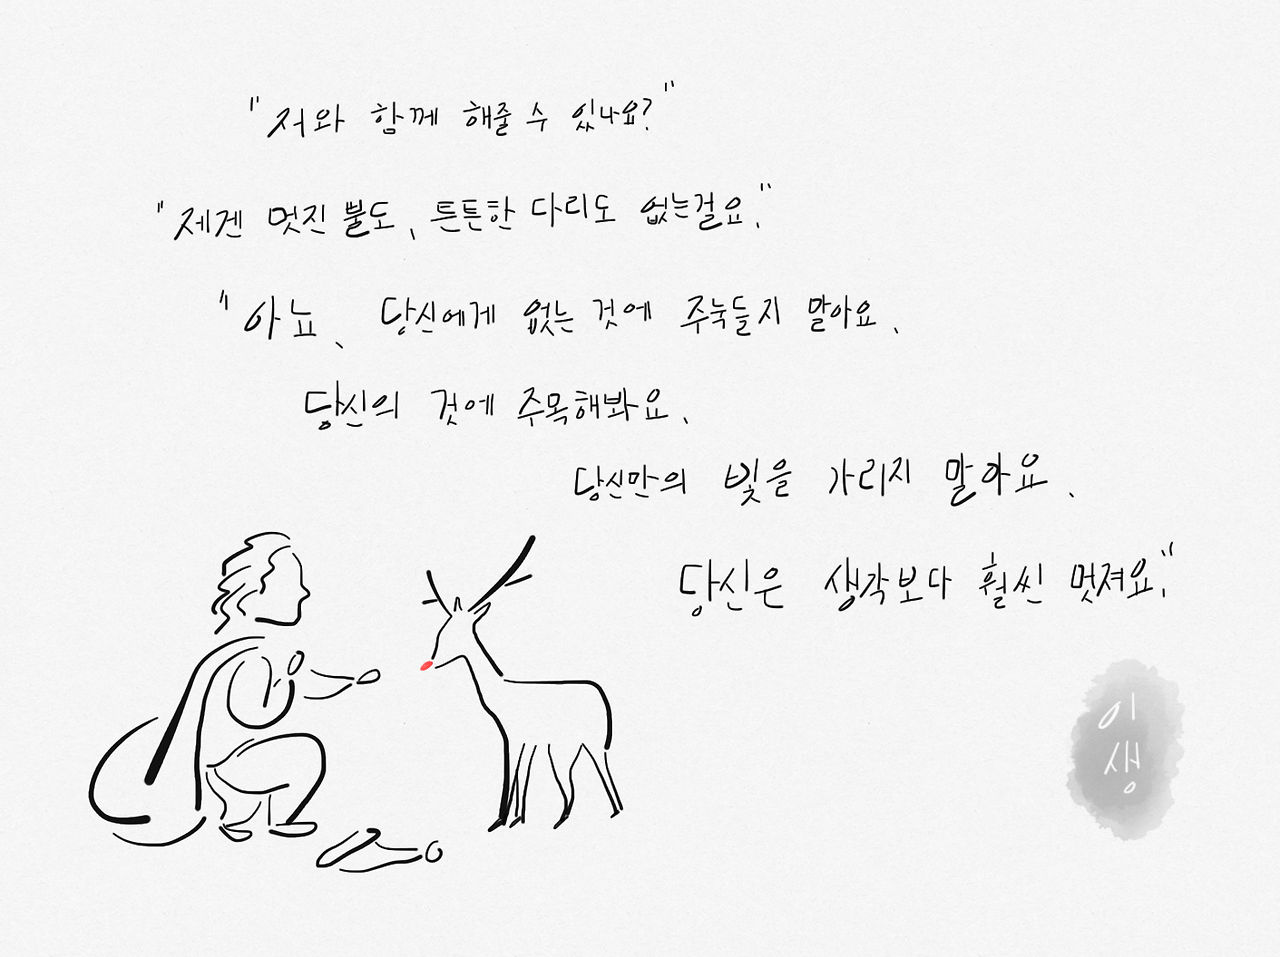 "저와 함께 해줄 수 있나요?"
"제겐 멋진 뿔도, 튼튼한 다리도 없는걸요."
"아뇨, 당신에게 없는 것에 주눅들지 말아요.
당신의 것에 주목해봐요.
당신만의 빛을 가리지 말아요.
당신은 생각보다 훨씬 멋져요."
이
생